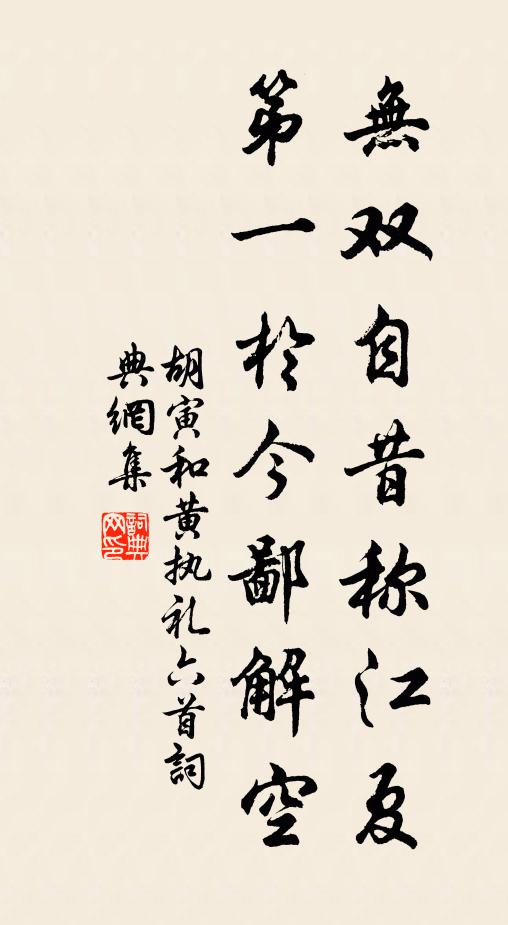 無双自昔称江夏
第一於今鄙解空
胡寅和黄执礼六首詞
典網集
詞典网印